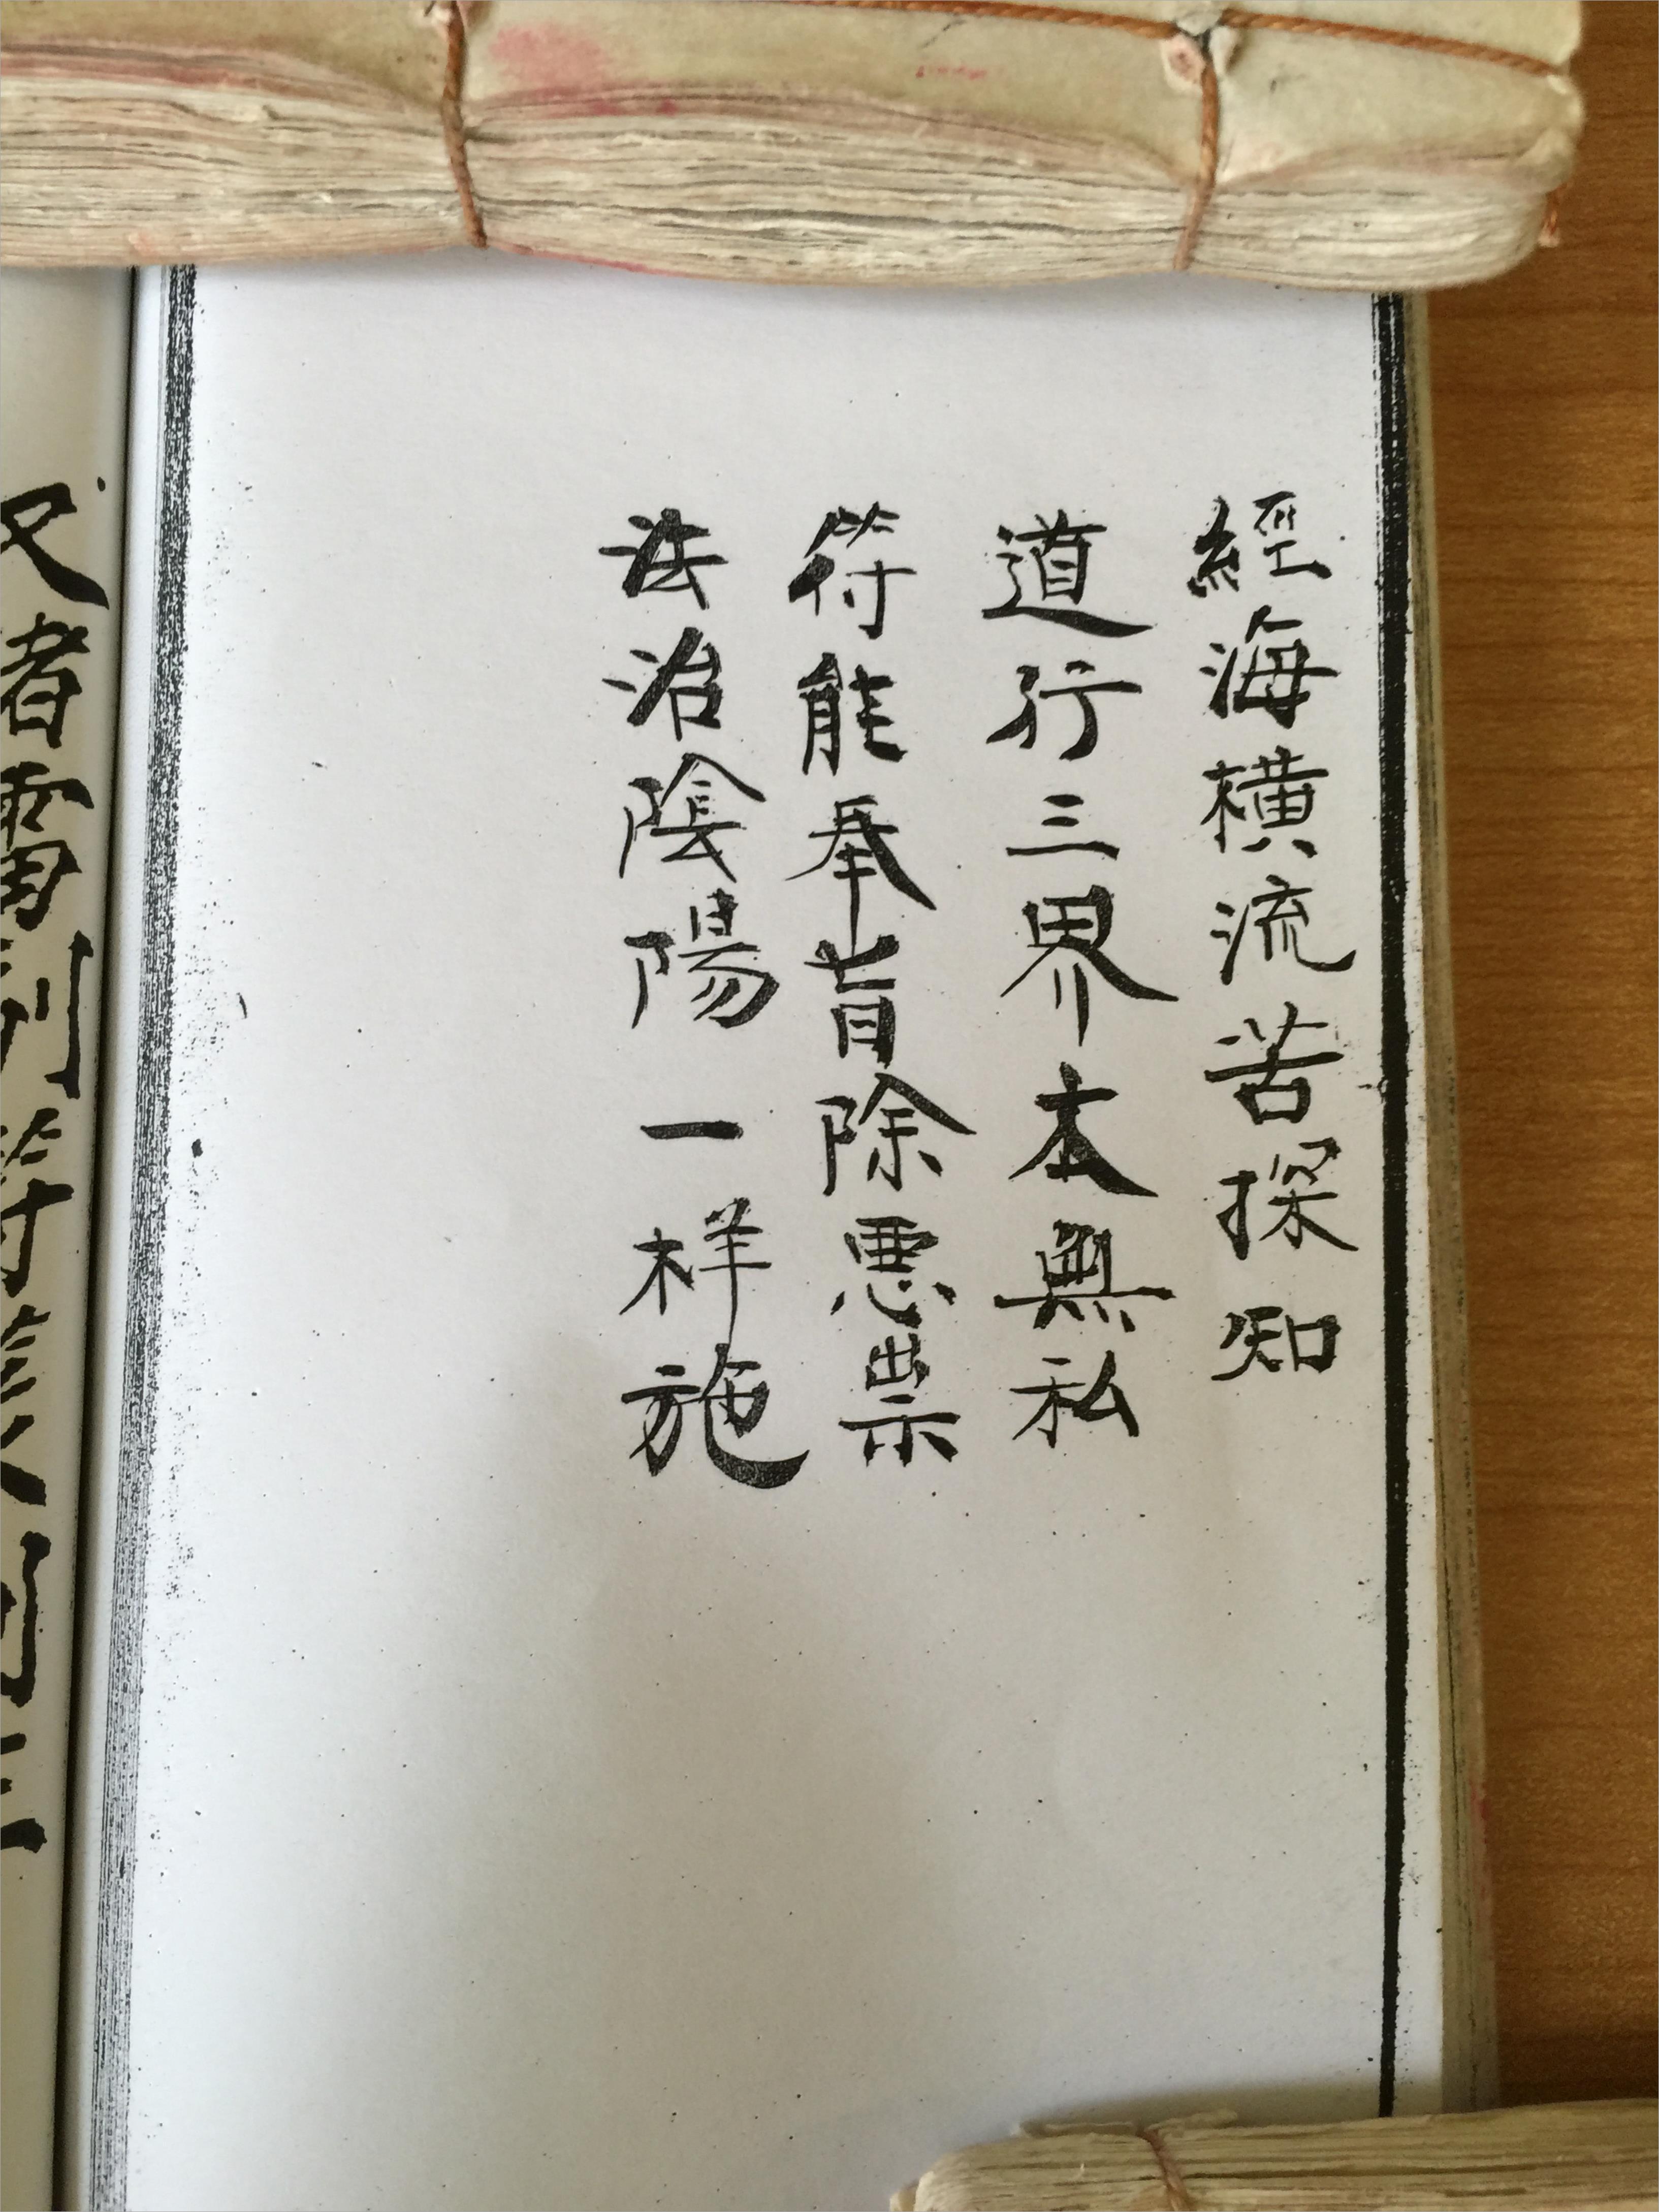 經海橫流苦探知
道行三界本無私
符能奉旨除惡祟
法治陰陽一样施
者